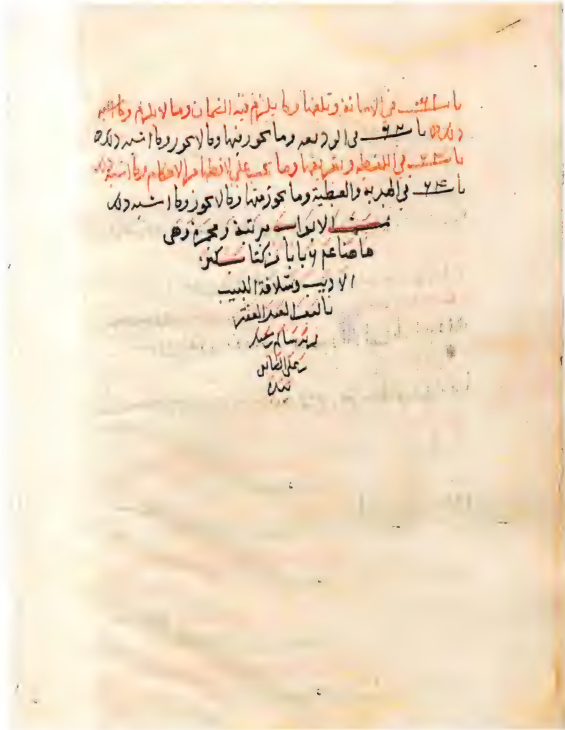 باب ٦١ في الامانة وتلفها وما يلزم فيه الضمان وما لا يلزم وما اشبه
ذلك باب ٦٢ في الوديعه وما يجوز فيها وما لا يجوز وما اشبه ذلك
باب ٦٣ في اللقطه وتعريفها وما يجب على لاقطها من الاحكام وما اشبه ذلك
باب ٦٤ في الهدية والعطية وما يجوز منها وما لا يجوز وما اشبه ذلك
الابواب مرتبة ومجزة وهي
بابا من كتاب كنز
الاديب وسلافة اللبيب
تاليف العبد الفقير
سالم بن سعيد
بن علي الصائغي
بيده